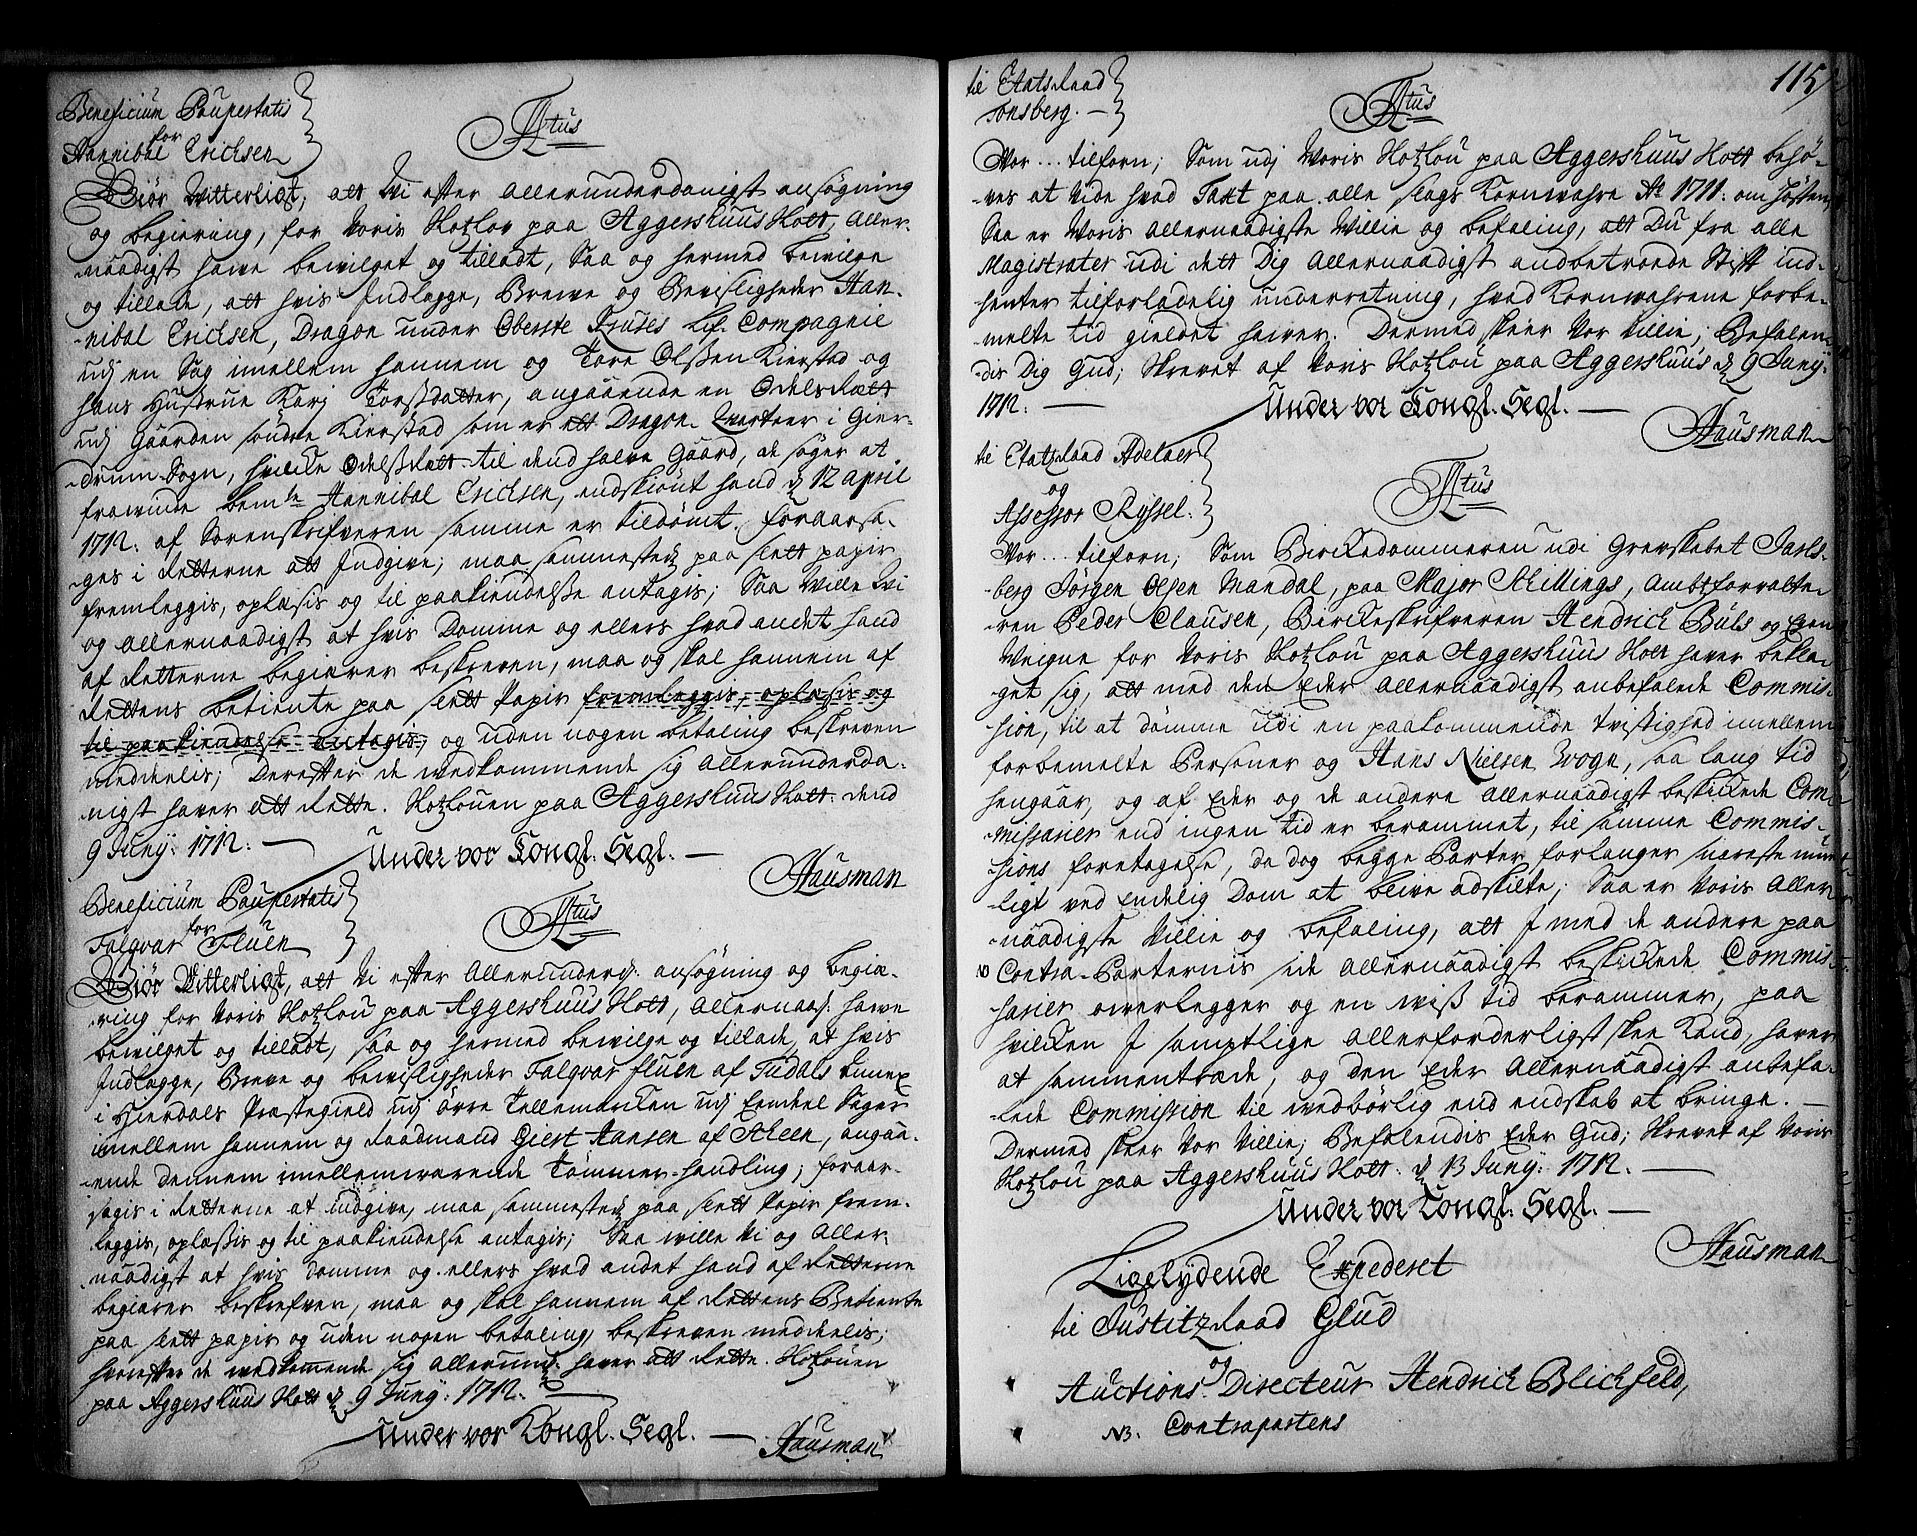 Beneficium Paupertatis
for
Hannibal Erichsen
Ftus
Giør Witterligt, att Wi efter allerunderdanigst ansøgning
og begiering, for Voris Slotzlov paa Aggershuus Slott, Aller-
naadigst hawe bewilget og tilladt, Saa og hermed bewilge
og tillade, att hvis Indlegge, Brewe og Bevisligheder Han-
nibal Erichsen, Dragon under Oberste Kruses Lif Compagnie
udj en Sag imellem hannem og Tore Olssen Kierstad og
hans Hustrue Karj Torssdatter, angaaende en Odelsrætt
udj Gaarden søndre Kierstad som er ett Dragon Qvarteer i Gier-
drum Sogn, hvilcke Odelssrætt til dend halve Gaard, de søger at
frawinde bemte Hannibal Erichsen, endskiønt hand d 12 april
1712: af Sorenskrifveren samme er tildømt. foraarsa-
ges i Retterne att Indgive, maa sammesteds paa slett papir
fremleggis, oplæsis og til paakiendelsse antagis; Saa Wille Wi
og allernaadigst at hvis Domme og ellers hvad andet hand
af Retterne begierer beskreven, maa og skal hannem af
Rettens betiente paa slett Papir fremleggis, oplæsis og
til paakiendelse antagis, og uden nogen betaling beskreven
meddeelis; Derefter de wedkommende sig Allerunderda-
nigst haver att Rette. Slotzlouen paa Aggershuus Slott: dend
9 Juny: 1712.
Under vor Kongl. Segl.
Hausman
Beneficium Paupertatis
for
Talgvar Fluen
Ftus
Giør Witterligt, att Wi efter Allerunderd: ansøgning og begie-
ring for Voris Slotzlou paa Aggershuus Slott, Allernaad: hawe
bewilget og tilladt, saa og hermed bewilge og tillade, at hvis
Indlegge, Breve og bevisligheder Talgvar fluen af Tudals Annex
i Hierdals Præstegield udj øvre Tellemarcken udj Eendeel Sager
imellem hannem og Raadmand Giert Hansen af Skeen, angaa-
ende dennem imellemwarende Tømmer-handling; foraar-
sagis i Retterne at indgive, maa sammesteds paa slett Papir frem-
leggis, oplæssis og til paakiendelse antagis; Saa wille Vi og Aller-
naadigst at hvis Domme og ellers hvad andet hand af Retterne
begierer beskrefven, maa og skal hannem af Rettens Betiente
paa slett papir og uden nogen betaling beskreven meddeelis;
hvorefter de wedkommende sig allerund: haver att Rette. Slotzlouen
paa Aggershuus Slott d 9 Juny: 1712.
Under vor Kongl. Segl.
Hausman
115
til Etatsraad
Tonsberg.
Ftus
Vor... tilforn; Som udj Voris Slotzlou paa Aggershuus Slott behø-
ves at vide hvad Taxt paa alle slags Kornwahre Ao 1711: om Høsten,
Saa er Voris Allernaadigste Villie og befaling, att Du fra alle
Magistrater udi dett Dig Allernaadigst andbetroede Stift ind-
henter tilforladelig underretning, hvad Kornwahrene forbe-
melte tid gieldet haver. Dermed skeer Vor Villie; Befalen-
dis Dig Gud; Skrevet af Voris Slotzlou paa Aggershuus d 9 Juny:
1712.
Under vor Kongl. Segl.
Hausman
til Etatzraad Adelaer
og
Assessor Ryssel.
Ftus
Vor... tilforn; Som Birckedommeren udi Grevskabet Jarls-
berg Jørgen Olsen Mandal, paa Major Schillings, Ambtforvalte-
ren Peder Clausen, Birckeskrifveren Hendrich Büls og Egne
Weigne for Voris Slotzlou paa Aggershuus Slott haver bekla-
get sig, att med den Eder Allernaadigst anbefalede Commis-
sion, til at dømme udi en paakommende tvistighed imellem
forbemelte Personer og Hans Nielsen Wogn, saa lang tid
hengaar, og af Eder og de andere Allernaadigst beskickede Com-
missarier end ingen tid er berammet, til samme Commis-
sions foretagelse, da dog begge Parter forlanger snareste mue-
ligt ved endelig Dom at blive adskilte; Saa er Voris Aller-
naadigste Villie og befaling, att I med de andere paa
NB Contra-Parternis side allernaadigst beskickede Commis-
sarier overlegger og en wiss tid berammer, paa
hvilcken I samptlige allerforderligst skee kand, haver
at sammentræde, og den Eder Allernaadigst anbefa-
lede Commission til wedbørlig end endskab at bringe.
Dermed skeer Vor Villie; Befalendis Eder Gud; Skrevet af Voris
Slotzlou paa Aggershuus Slott. d 13 Juny: 1712.
Under vor Kongl. Segl.
Hausman
Ligelydende Expederet
til Justitzraad Glud
og
Auctions Directeur Hendrich Blichfeld,
NB. Contrapartens